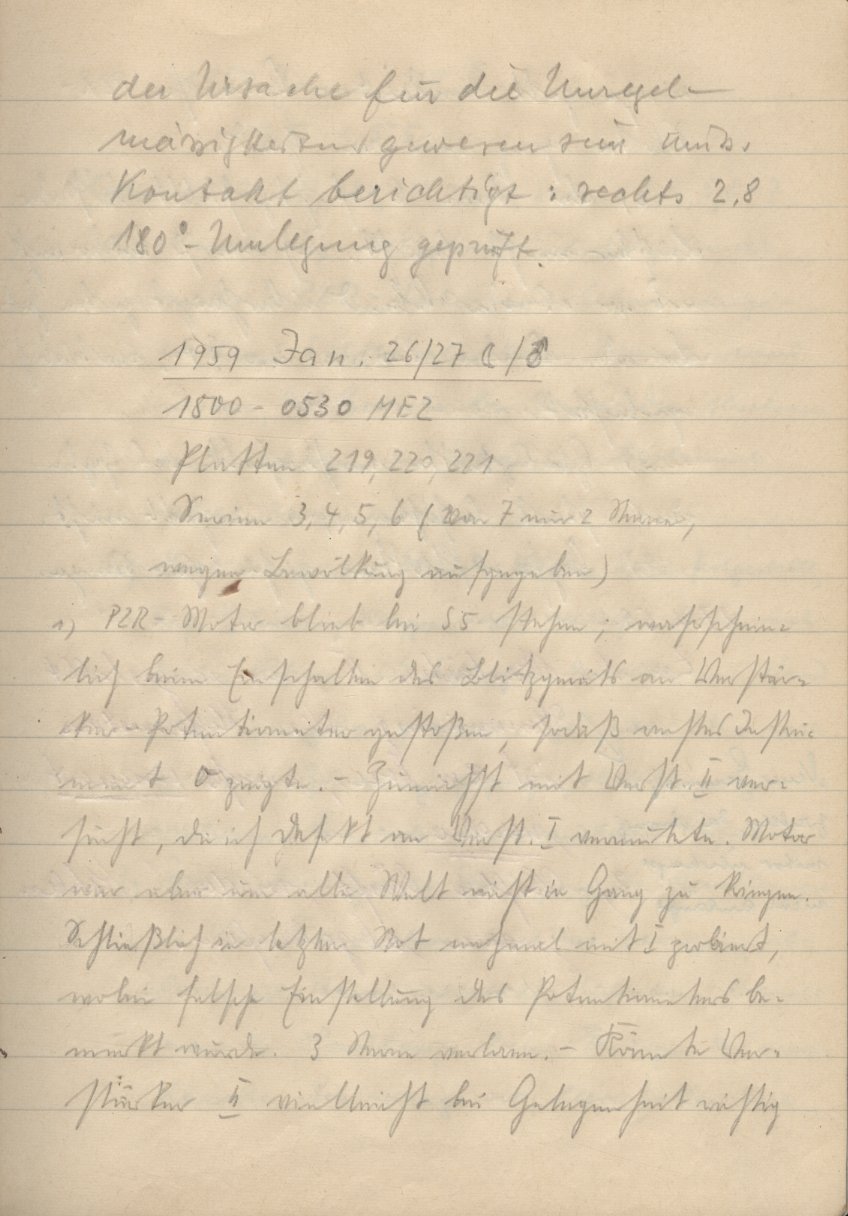 der Ursache für die Unregel-
mässigkeiten gewesen sein muss.
Kontakt berichtigt: rechts 2,8
180°-Umlegung geprüft.
1959 Jan. 26/27 ☾/♂
1800 - 0530 MEZ
Platten 219, 220, 221
Serien 3, 4, 5, 6 (von 7 nur 2 Sterne,
wegen Bewölkung aufgegeben)
1) PZR-Motor blieb bei S5 stehen; wahrschein-
lich beim Einschalten des Blitzgeräts an Verstär-
ker-Potentiometer gestoßen, sodaß rechtes Instru-
ment 0 zeigte. - Zunächst mit Verst. II ver-
sucht, da ich Defekt an Verst. I vermutete. Motor
war aber um alle Welt nicht in Gang zu kriegen.
Schließlich in letzter Not nochmal mit I probiert,
wobei falsche Einstellung des Potentiometers be-
merkt wurde. 3 Sterne verloren. - Könnte Ver-
stärker II vielleicht bei Gelegenheit richtig